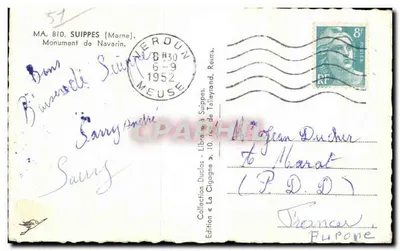 51
MA. 810. SUIPPES (Marne).
Monument de Navarin.
Bons
Baisers de Suippes
Sarry André
Sarry
VERDUN
6-9
1952
MEUSE
8F
RF
Collection Duclos - Suippes.
Edition « La Cigogne », 10, rue de Talleyrand, Reims.
CPARAMA
Jean Ducher
A Marat
(P. D. D)
France
Europe